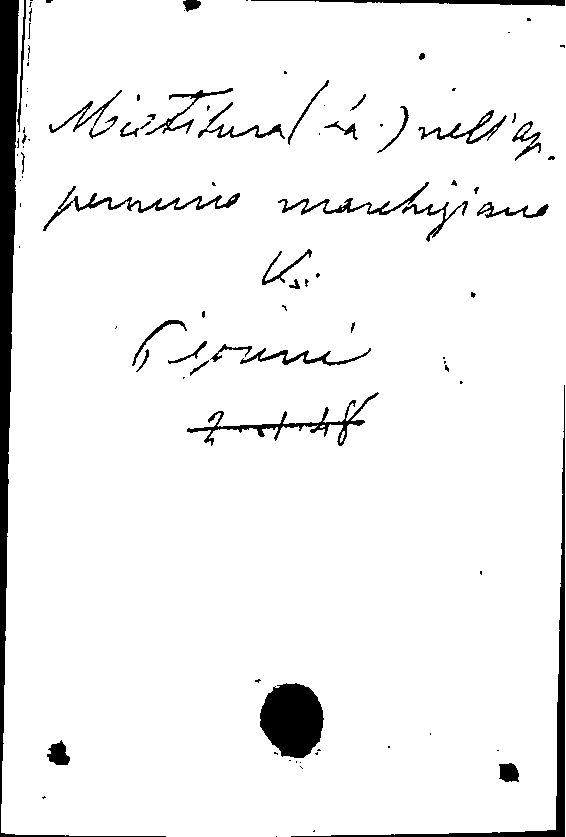 Mietitura (La.) nell'ap-
pennino marchigiano
V.
Pigorini
2-1-48